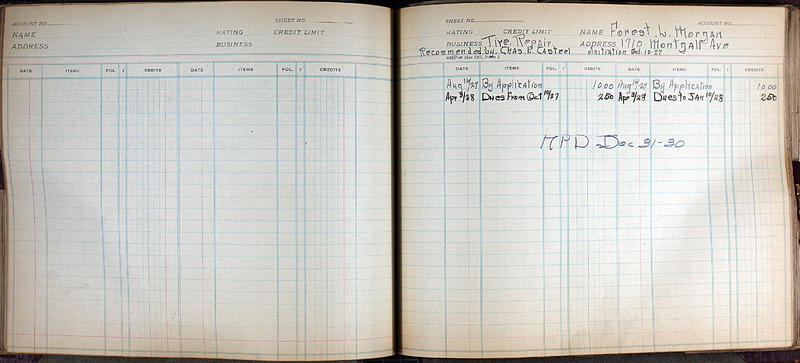 SHEET NO.
ACCOUNT NO.
NAME RATING CREDIT LIMIT
ADDRESS BUSINESS
DATE ITEMS FOL. √ DEBITS DATE ITEMS FOL. √ CREDITS
SHEET NO. ACCOUNT NO.
RATING CREDIT LIMIT NAME Forest. W. Morgan
BUSINESS Tire Repair ADDRESS 1710 Montgall Ave
Recommended by. Chas. E. Casteel Initiation Oct. 10-27
DATE ITEMS FOL. √ DEBITS DATE ITEMS FOL. √ CREDITS
Aug 16/27 By Application 10.00 Aug 16/27 By Application 10.00
Apr 3/28 Dues From Oct 10/27 2.50 Apr 3/28 Dues to JAN 10/28 2.50
NPD Dec 31-30